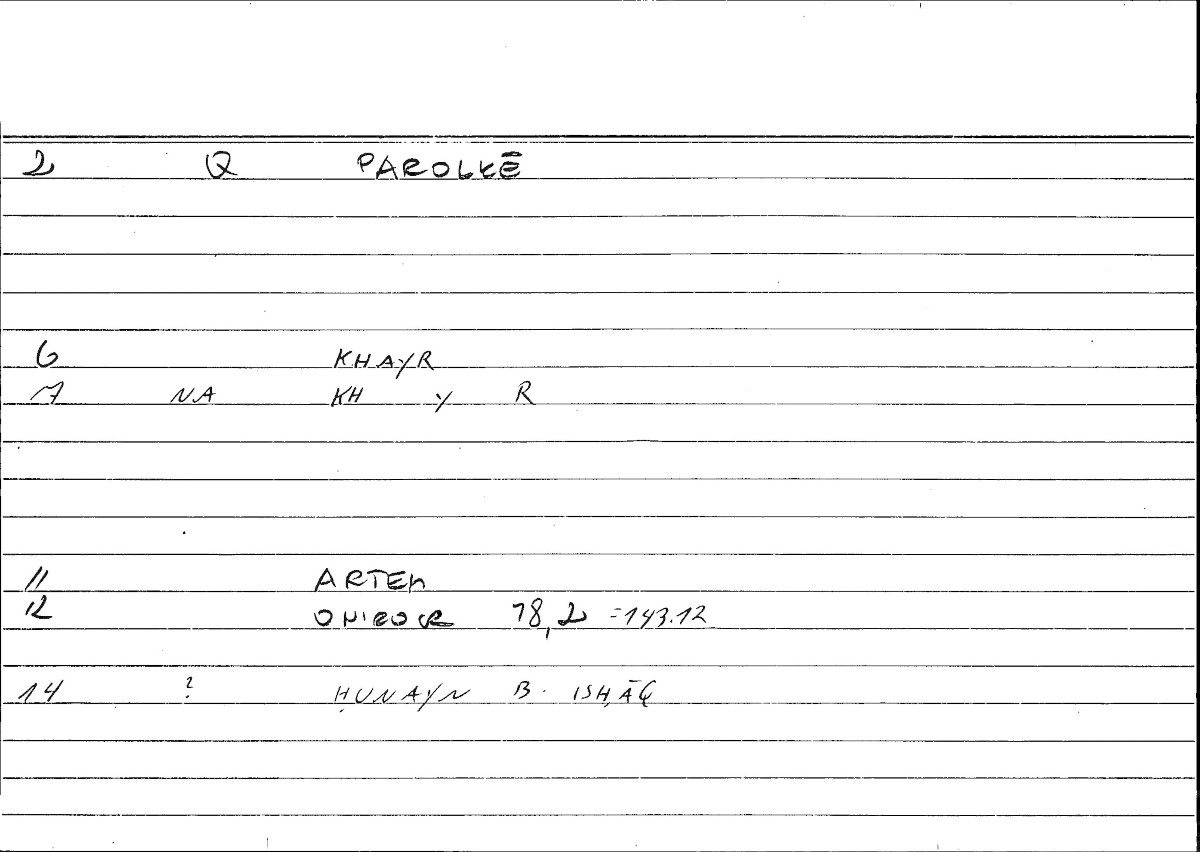 2 Q PAROLKĒ
6 KHAYR
7 NA KH Y R
11 ARTEM
12 ONIROCR 78,2 =143.12
14 ? ḤUNAYN B. ISḤĀQ